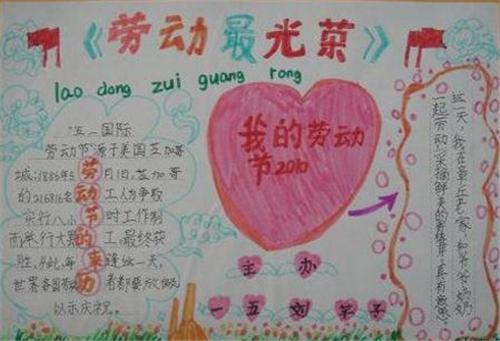 《劳动最光荣》
lao dong zui guang rong
"五一国际
劳动节"源于美国芝加哥
城,1886年5月1日,芝加哥
的216816名工人为争取
实行八小时工作制
而举行大罢工,最终获
胜,从此,每逢这一天,
世界各国劳动者都要放假,
以示庆祝。
劳动节的来历
我的劳动
节2010
主 办
一 五 刘 子
这一天,我在章丘老家和爷爷奶奶
一起劳动,采摘鲜美的香椿芽,真有意思。